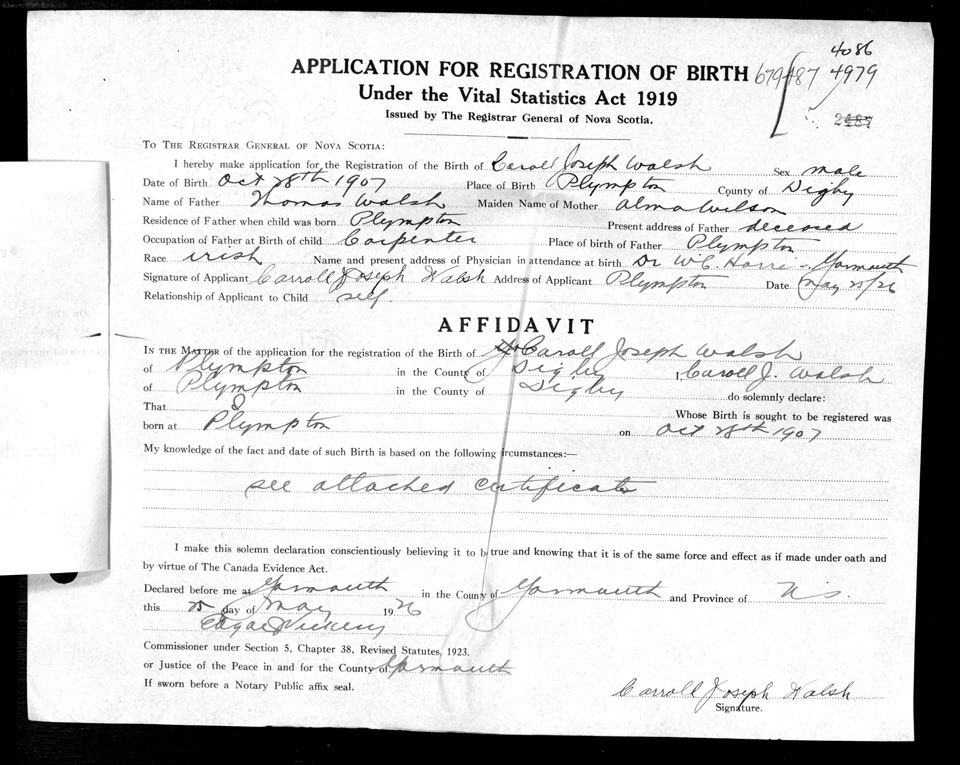 4086
APPLICATION FOR REGISTRATION OF BIRTH 679487 4979
Under the Vital Statistics Act 1919
2487
Issued by The Registrar General of Nova Scotia.
To The Registrar General of Nova Scotia:
I hereby make application for the Registration of the Birth of Caroll Joseph Walsh Sex male
Date of Birth Oct 28th 1907 Place of Birth Plympton County of Digby
Name of Father Thomas Walsh Maiden Name of Mother Alma Wilson
Residence of Father when child was born Plympton Present address of Father deceased
Occupation of Father at Birth of child Carpenter Place of birth of Father Plympton
Race irish Name and present address of Physician in attendance at birth Dr W.C. Harris Yarmouth
Signature of Applicant Carroll Joseph Walsh Address of Applicant Plympton Date May 25/26
Relationship of Applicant to Child self
AFFIDAVIT
In the Matter of the application for the registration of the Birth of Caroll Joseph Walsh
of Plympton in the County of Digby I, Caroll J. Walsh
of Plympton in the County of Digby do solemnly declare:
That I Whose Birth is sought to be registered was
born at Plympton on Oct 28th 1907
My knowledge of the fact and date of such Birth is based on the following circumstances:—
see attached certificate
I make this solemn declaration conscientiously believing it to b true and knowing that it is of the same force and effect as if made under oath and
by virtue of The Canada Evidence Act.
Declared before me at Yarmouth in the County of Yarmouth and Province of N.S.
this 25 day of May 1926
Edgar Vickery
Commissioner under Section 5, Chapter 38, Revised Statutes, 1923.
or Justice of the Peace in and for the County of Yarmouth
If sworn before a Notary Public affix seal.
Carroll Joseph Walsh
Signature.